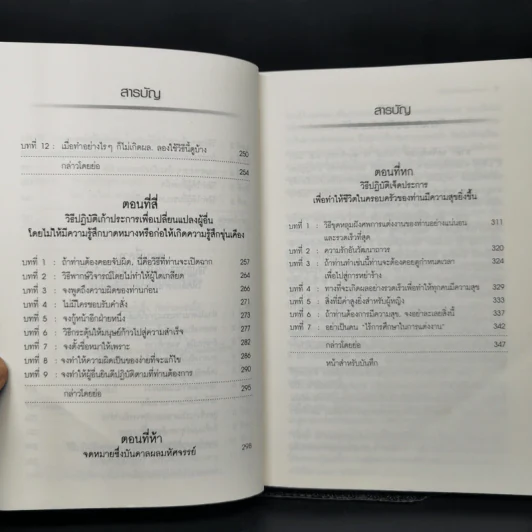 สารบัญ
บทที่ 12 : เมื่อทำอย่างไรๆ ก็ไม่เกิดผล. ลองใช้วิธีนี้ดูบ้าง 260
กล่าวโดยย่อ 264
ตอนที่สี่
วิธีปฏิบัติเก้าประการเพื่อเปลี่ยนแปลงผู้อื่น
โดยไม่ให้มีความรู้สึกบาดหมางหรือก่อให้เกิดความรู้สึกขุ่นเคือง
บทที่ 1 : ถ้าท่านต้องคอยจับผิด, นี่คือวิธีที่ท่านจะเปิดฉาก 257
บทที่ 2 : วิธีพากษ์วิจารณ์โดยไม่ทำให้ผู้ใดเกลียด 264
บทที่ 3 : จงพูดถึงความผิดของท่านก่อน 267
บทที่ 4 : ไม่มีใครชอบรับคำสั่ง 271
บทที่ 5 : จงกู้หน้าอีกฝ่ายหนึ่ง 273
บทที่ 6 : วิธีกระตุ้นให้มนุษย์ก้าวไปสู่ความสำเร็จ 276
บทที่ 7 : จงตั้งชื่อหมาให้เพราะ 282
บทที่ 8 : จงทำให้ความผิดเป็นของง่ายที่จะแก้ไข 286
บทที่ 9 : จงทำให้ผู้อื่นยินดีปฏิบัติตามที่ท่านต้องการ 290
กล่าวโดยย่อ 295
ตอนที่ห้า
จดหมายซึ่งบันดาลผลมหัศจรรย์ 298
สารบัญ
ตอนที่หก
วิธีปฏิบัติเจ็ดประการ
เพื่อทำให้ชีวิตในครอบครัวของท่านมีความสุขยิ่งขึ้น
บทที่ 1 : วิธีขุดหลุมฝังศพการแต่งงานของท่านอย่างแน่นอน 311
และรวดเร็วที่สุด
บทที่ 2 : ความรักอันวัฒนาถาวร 320
บทที่ 3 : ถ้าท่านทำเช่นนี้ท่านจะต้องคอยดูกำหนดเวลา 324
เพื่อไปสู่การหย่าร้าง
บทที่ 4 : ทางที่จะเกิดผลอย่างรวดเร็วเพื่อทำให้ทุกคนมีความสุข 329
บทที่ 5 : สิ่งที่มีค่าสูงยิ่งสำหรับผู้หญิง 334
บทที่ 6 : ถ้าท่านต้องการมีความสุข, จงอย่าละเลยสิ่งนี้ 337
บทที่ 7 : อย่าเป็นคน "ไร้การศึกษาในการแต่งงาน" 342
กล่าวโดยย่อ 347
หน้าสำหรับบันทึก